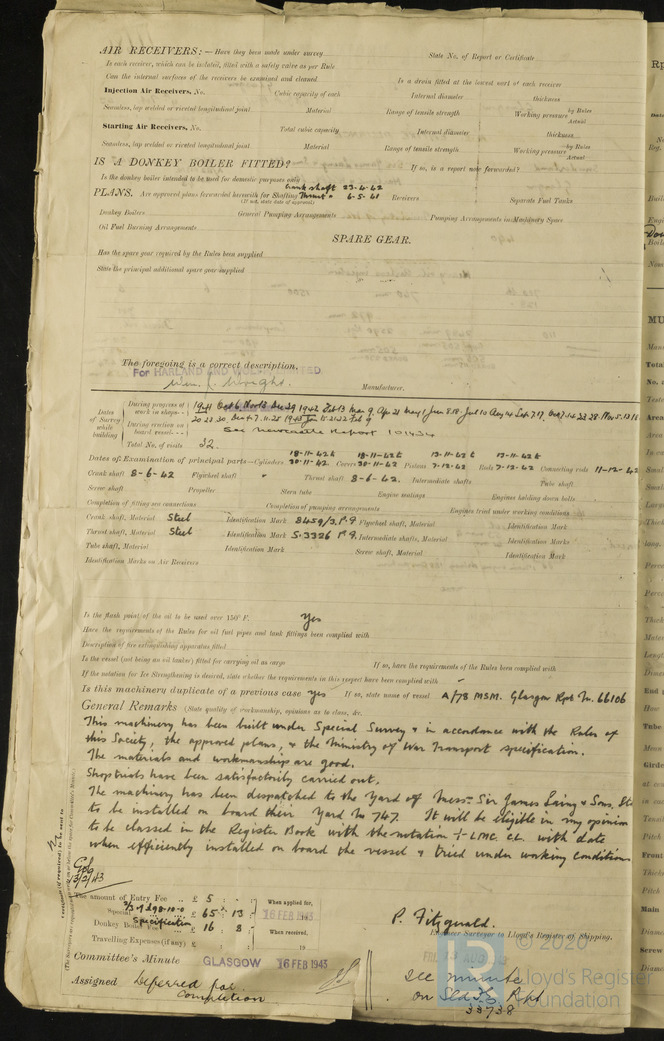 AIR RECEIVERS:—Have they been made under survey State No. of Report or Certificate
Is each receiver, which can be isolated, fitted with a safety valve as per Rule
Can the internal surfaces of the receivers be examined and cleaned Is a drain fitted at the lowest part of each receiver
Injection Air Receivers, No. Cubic capacity of each Internal diameter thickness
Seamless, lap welded or riveted longitudinal joint Material Range of tensile strength Working pressure by Rules Actual
Starting Air Receivers, No. Total cubic capacity Internal diameter thickness
Seamless, lap welded or riveted longitudinal joint Material Range of tensile strength Working pressure by Rules Actual
IS A DONKEY BOILER FITTED? If so, is a report now forwarded?
Is the donkey boiler intended to be used for domestic purposes only
Crank shaft 23-4-42
PLANS. Are approved plans forwarded herewith for Shafting Thrust " 6-5-41 Receivers Separate Fuel Tanks
(If not, state date of approval)
Donkey Boilers General Pumping Arrangements Pumping Arrangements in Machinery Space
Oil Fuel Burning Arrangements
SPARE GEAR.
Has the spare gear required by the Rules been supplied
State the principal additional spare gear supplied
The foregoing is a correct description,
For HARLAND AND WOLFF LIMITED
Manufacturer.
Dates of Survey while building
During progress of work in shops - - 1941 Oct 6 Nov 13 Dec 29 1942 Feb 13 Mar 9 Apr 21 May 1 Jun 8.18 Jul 10 Aug 14 Sep 7.17
During erection on board vessel - - See Newcastle Report 101434
Total No. of visits 32.
Dates of Examination of principal parts—Cylinders 18-11-42 & 30-11-42 Covers 18-11-42 & 30-11-42 Pistons 13-11-42 & 7-12-42 Rods 13-11-42 & 7-12-42 Connecting rods 11-12-42
Crank shaft 8-6-42 Flywheel shaft " Thrust shaft 8-6-42. Intermediate shafts Tube shaft
Screw shaft Propeller Stern tube Engine seatings Engines holding down bolts
Completion of fitting sea connections Completion of pumping arrangements Engines tried under working conditions
Crank shaft, Material Steel Identification Mark 8459/3.P.9 Flywheel shaft, Material Identification Mark
Thrust shaft, Material Steel Identification Mark 5.3326 P.9. Intermediate shafts, Material Identification Marks
Tube shaft, Material Identification Mark Screw shaft, Material Identification Mark
Identification Marks on Air Receivers
Is the flash point of the oil to be used over 150° F. Yes
Have the requirements of the Rules for oil fuel pipes and tank fittings been complied with
Description of fire extinguishing apparatus fitted
Is the vessel (not being an oil tanker) fitted for carrying oil as cargo If so, have the requirements of the Rules been complied with
If the notation for Ice Strengthening is desired, state whether the requirements in this respect have been complied with
Is this machinery duplicate of a previous case Yes If so, state name of vessel A/78 MSM. Glasgow Rpt No. 66106
General Remarks (State quality of workmanship, opinions as to class, &c.
This machinery has been built under Special Survey & in accordance with the Rules of
this Society, the approved plans, & the Ministry of War Transport specification.
The materials and workmanship are good.
Shop trials have been satisfactorily carried out.
The machinery has been despatched to the Yard of Messrs Sir James Laing & Sons, Ltd
to be installed on board their Yard No 747. It will be eligible in my opinion
to be classed in the Register Book with the notation + LMC. CL. with date
when efficiently installed on board the vessel & tried under working conditions
13/2/43
The amount of Entry Fee .. £ 5 : : When applied for,
Special £ 65 : 13 : 16 FEB 1943
Specification
Donkey Boiler Fee £ 16 : 8 : When received,
Travelling Expenses (if any) £ : : 19
P. Fitzgerald.
Engineer Surveyor to Lloyd's Register of Shipping.
Committee's Minute GLASGOW 16 FEB 1943
Assigned Deferred for
completion
See minute
on Sld F.E. Rpt
33738
© 2020
Lloyd's Register
Foundation